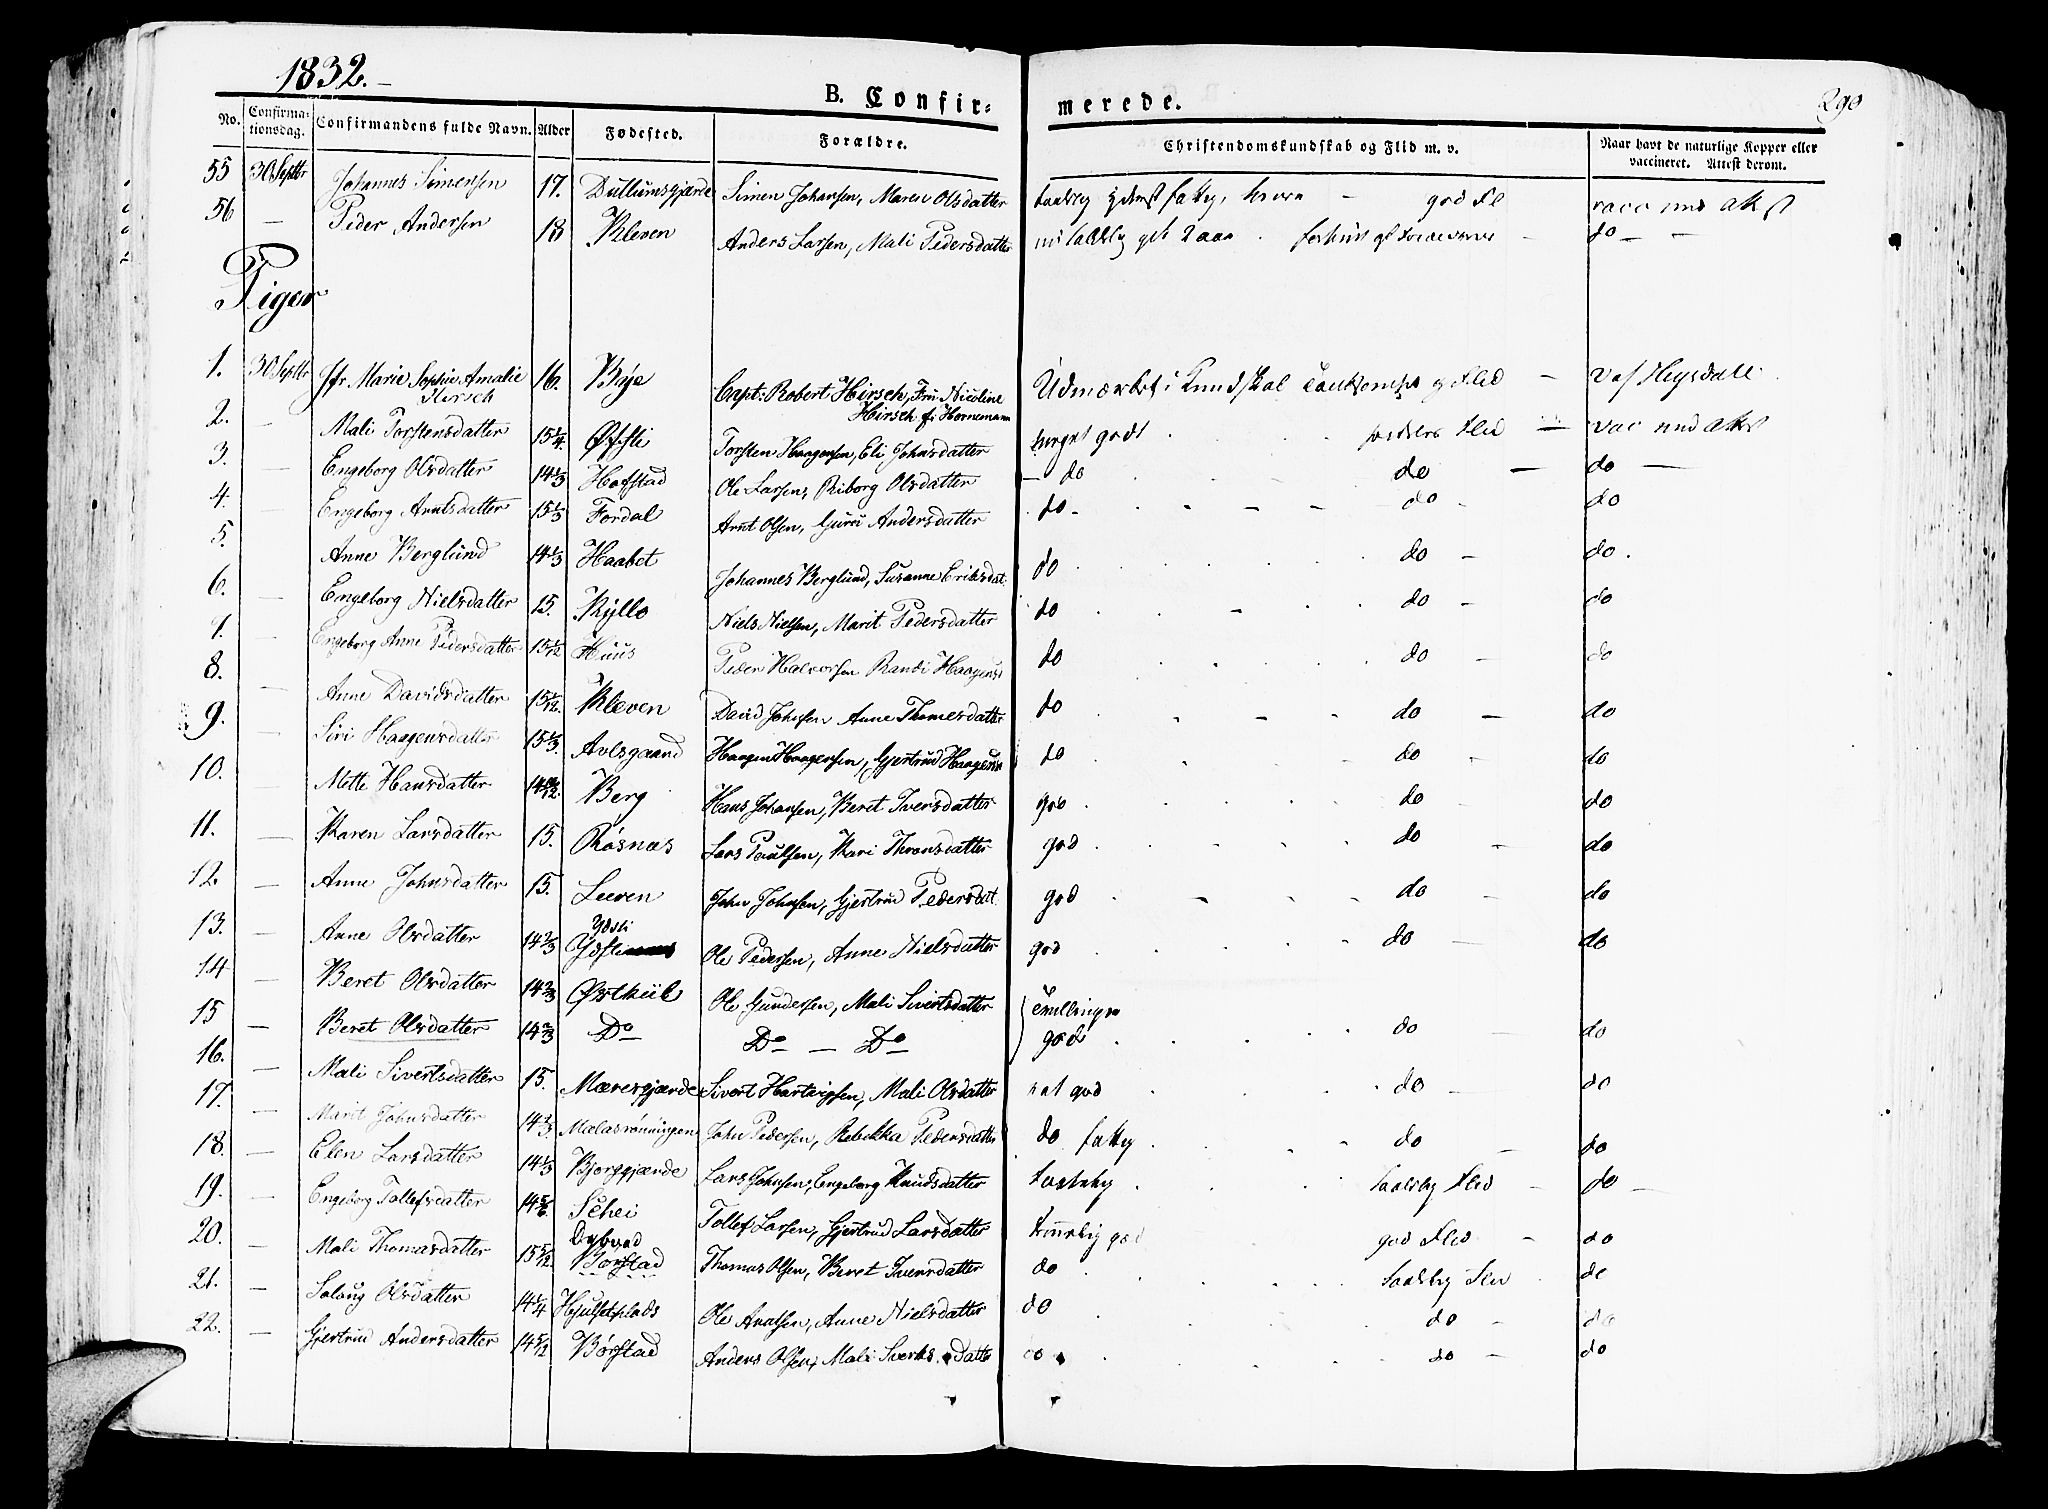 1832.
B. Confir=
merede.
290
No. Confirma-tionsdag. Confirmandens fulde Navn. Alder Fødested. Forældre. Christendomskundskab og Flid m. v. Naar havt de naturlige Kopper eller vaccineret. Attest derom.
55 30 Septbr Johannes Simensen 17. Simen Johansen, Maren Olsdatter god
56 — Peder Andersen 18 Kleven Anders Larsen, Mali Pedersdatter do — —
Piger
1. 30 Septbr Jfr Marie Sophie Amalie 16. Capt: Robert Hirsch, Fru Nicoline Udmærket i Kundskab og Flid —
Hirsch Hirsch f: Hornemann
2. — Mali Torstensdatter 15 1/4 Torsten Haagensen, Eli Johnsdatter meget godt Flid —
3. — Engeborg Olsdatter 14 1/3 Hofstad Ole Larsen, Riborg Olsdatter — do do — do —
4. — Engeborg Arntsdatter 15 1/3 Fordal Arnt Olsen, Guri Andersdatter do - do do
5. — Anne Berglund 14 1/3 Haabet Johannes Berglund, Susanne Eriksdat. do do — do.
6. — Engeborg Nielsdatter 15. Kyllo Niels Nielsen, Marit Pedersdatter do do — do
7. — Engeborg Anne Pedersdatter Huus Peder Halvorsen Randi Haagens do do — do
8. — Anne Davidsdatter Kleven David Johnsen Anne Thomesdatter do do — do
9. — Siri Haagensdatter 15 1/3 Avlsgaard Haagen Haagensen, Gjertrud Haagens do do - do
10. Mette Hansdatter Berg Hans Johansen, Beret Iversdatter god do do
11. — Karen Larsdatter 15. Røsnæs Lars Paulsen, Kari Thronsdatter god do - do
12. — Anne Johnsdatter 15. Leeren John Johnsen, Gjertrud Pedersdat. god do - do
13. — Anne Olsdatter 14 2/3 Ydsti Ole Pedersen, Anne Nielsdatter god do — do
14 — Beret Olsdatter 14 2/3 Ole Gundersen, Mali Sivertsdatter Tvillinger
15 — Beret Olsdatter 14 2/3 Do Do — Do god do do
16. — Mali Sivertsdatter 15. Sivert Hartvigsen, Mali Olsdatter god do — do
17. — Marit Johnsdatter John Pedersen, Rebekka Pedersdatter do do — do
18. — Elen Larsdatter 14 1/3 Lars Johnsen, Engeborg Knudsdatter Flid — do —
19. — Engeborg Tollefsdatter 14 5/6. Schei Tollef Larsen, Gjertrud Larsdatter god god Flid — do
20. — Mali Thomasdatter 15 5/12 Børstad Thomas Olsen, Beret Iversdatter do do
21. — Solaug Olsdatter 14 1/4 Hjulsetplads Ole Arntsen, Anne Nielsdatter do do - do
22. — Gjertrud Andersdatter 14 5/12 Børstad Anders Olsen, Mali do do — do